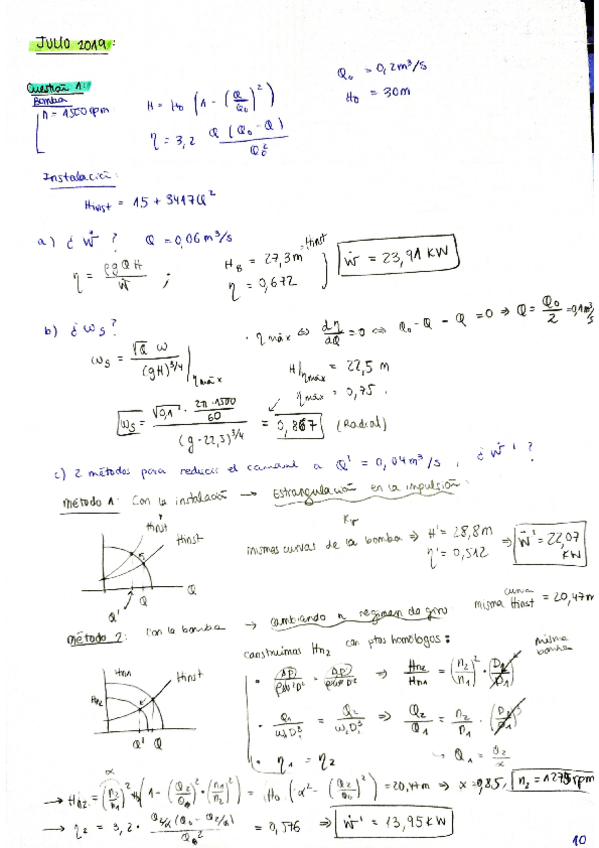 JULIO 2019:
Cuestión 1:
Bomba
n = 1500 rpm
H = H₀ (1 - (Q/Q₀)²)
η = 3,2 Q (Q₀ - Q) / Q₀²
Q₀ = 0,2 m³/s
H₀ = 30m
Instalación:
Hinst = 15 + 3417Q²
a) ¿ Ẇ ? Q = 0,06 m³/s
η = ρgQH / Ẇ ;
H_B = 27,3m = Hinst
η = 0,672
Ẇ = 23,91 KW
b) ¿ ωs ?
ωs = √Q ω / (gH)^3/4 | η máx
· η máx ⇔ dη/dQ = 0 ⇔ Q₀ - Q - Q = 0 ⇒ Q = Q₀/2 = 0,1 m³/s
H/ηmáx = 22,5 m
ηmáx = 0,75.
ωs = √0,1 · 2π · 1500/60 / (g · 22,5)^3/4 = 0,867 (Radial)
c) 2 métodos para reducir el caudal a Q' = 0,04 m³/s , ¿ Ẇ' ?
Método 1: Con la instalación → Estrangulación en la impulsión:
Hinst'
Hinst
Q' Q
Q
mismas curvas de la bomba ⇒ H' = 28,8m
η' = 0,512
⇒ Ẇ' = 22,07 KW
Método 2: Con la bomba → cambiando n régimen de giro: misma curva Hinst = 20,47m
Hn1
Hn2
Hinst
Q' Q
construimos Hn2 con ptos homólogos:
misma bomba
⇒ Hn2/Hn1 = (n2/n1)² · (D2/D1)²
· Q1/ω1D1³ = Q2/ω2D2³ ⇒ Q2/Q1 = n2/n1 · (D2/D1)³
· η1 = η2
→ Q1 = Q2/α
α
→ Hn2 = (n2/n1)² H₀ (1 - (Q2/Q₀)² · (n1/n2)²) = H₀ (α² - (Q2/Q₀)²) = 20,47m ⇒ α = 0,85, n2 = 1275 rpm
→ η2 = 3,2 · Q2/α (Q₀ - Q2/α) / Q₀² = 0,576 ⇒ Ẇ' = 13,95 KW
10